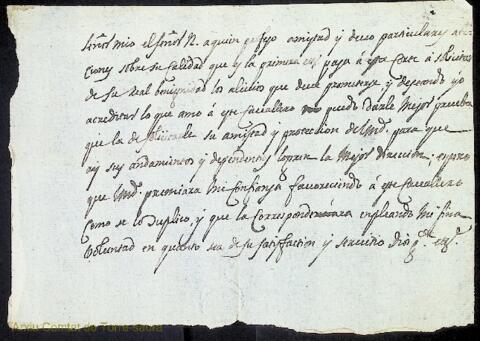 Señor mio el señor N. a quien profeso amistad y devo particulares aten
ciones sobre su calidad que es la primera vez pasa à esa Corte à solicitar
de su Real benignidad los alivios que deve prometerse, y deseando yo
acreditar lo que amo à este Cavallero no puedo darle mejor prueba
que la de solicitarle su amistad y proteccion de Vmd. para que
asi sus andamientos y dependencias logren la mejor direccion, espero
que Vmd. premiara mi confianza favoreciendo à este Cavallero
como se lo suplico, y que la correspondera empleando mi fina
voluntad en quanto sea de su satisfaccion y servicio Dios g.e
Arxiu Comtat de Torre-saura